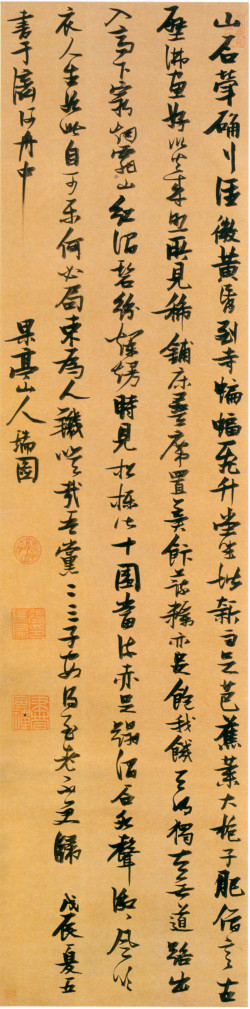 山石犖确行徑微黃昏到寺蝙蝠飛升堂坐階新雨足芭蕉葉大梔子肥僧言古
壁佛畫好以火來照所見稀鋪床拂席置羹飯疏糲亦足飽我飢天明獨去無道路出
入高下窮烟霏山紅澗碧紛爛熳時見松櫪皆十圍當流赤足蹋澗石水聲激〻風吹
衣人生如此自可樂何必局束為人鞿嗟哉吾黨二三子安得至老不更歸 戊辰夏五
書于河舟中
果亭山人瑞圖